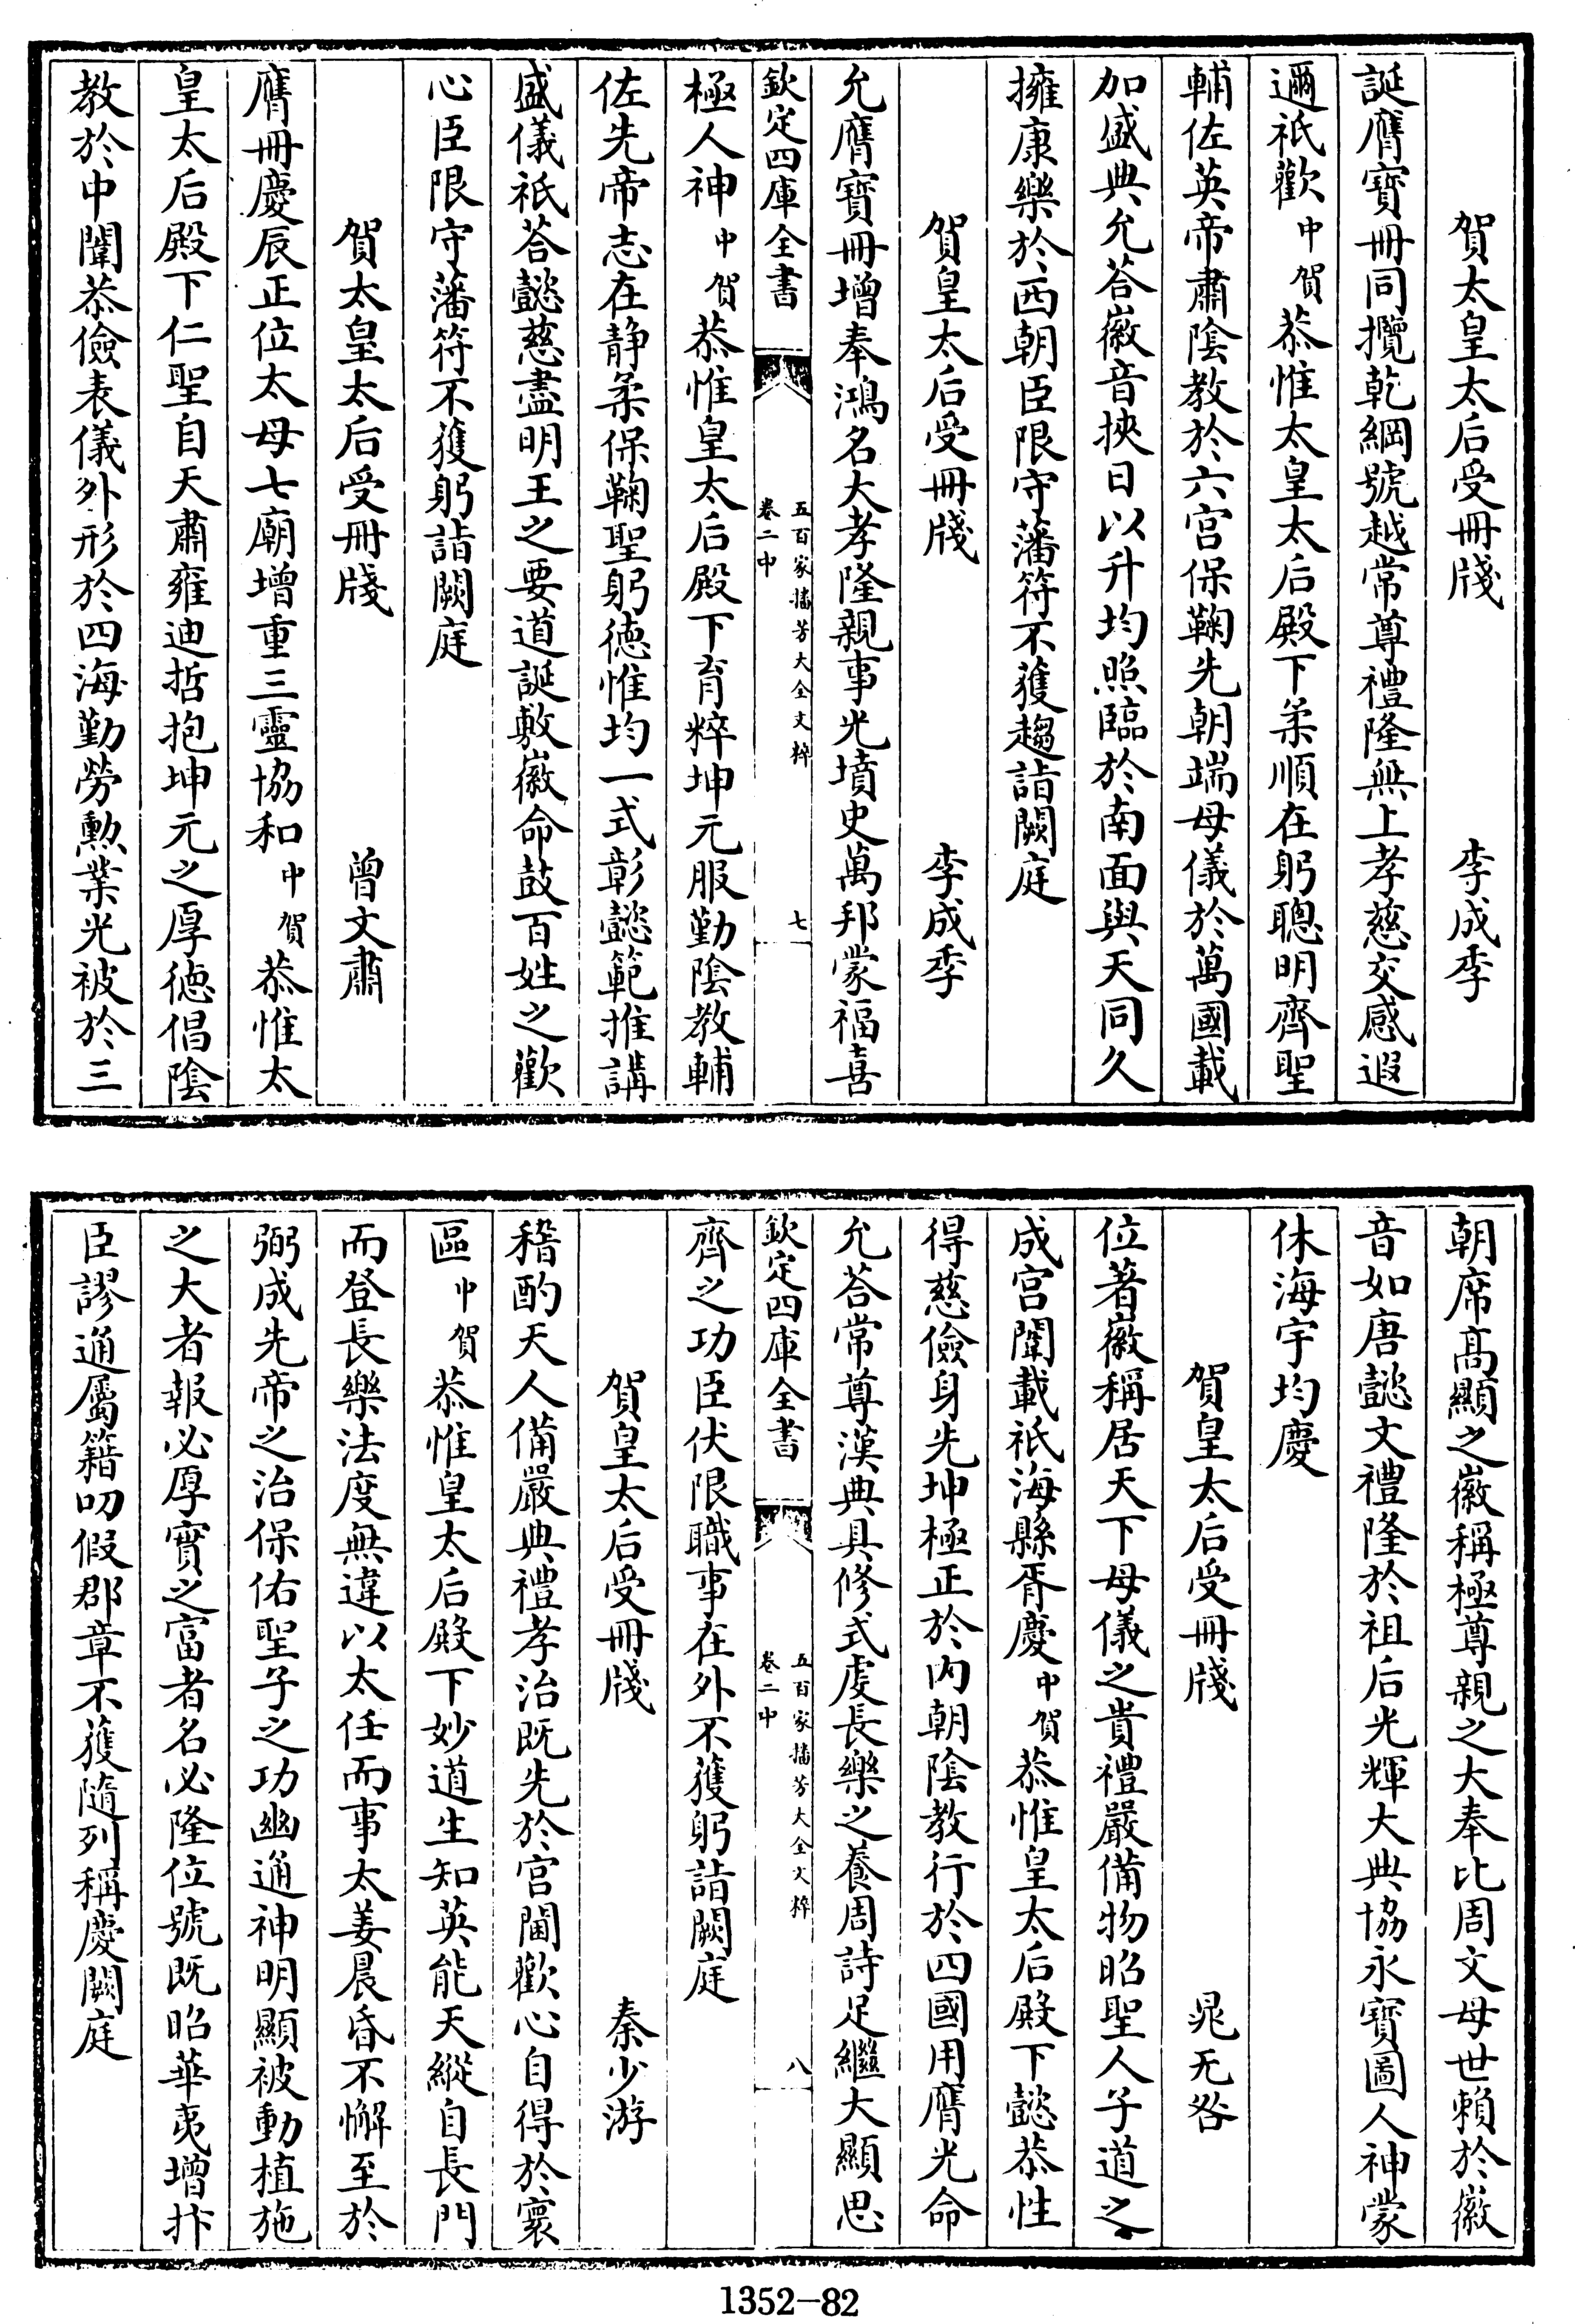 賀太皇太后受冊牋　李成季
誕膺寶冊同攬乾綱號越常尊禮隆無上孝慈交感遐
邇祇歡中賀恭惟太皇太后殿下柔順在躬聰明齊聖
輔佐英帝肅陰教於六宮保鞠先朝端母儀於萬國載
加盛典允荅徽音挾日以升均照臨於南面與天同久
擁康樂於西朝臣限守藩符不獲趨詣闕庭
賀皇太后受冊牋　李成季
允膺寶冊增奉鴻名大孝隆親事光墳史萬邦蒙福喜
欽定四庫全書　五百家播芳大全文粹　卷二中　七
極人神中賀恭惟皇太后殿下育粹坤元服勤陰教輔
佐先帝志在静柔保鞠聖躬徳惟均一式彰懿範推講
盛儀祇荅懿慈盡明王之要道誕敷徽命鼓百姓之歡
心臣限守藩符不獲躬詣闕庭
賀太皇太后受冊牋　曾文肅
膺冊慶辰正位太母七廟增重三靈協和中賀恭惟太
皇太后殿下仁聖自天肅雍迪哲抱坤元之厚徳倡陰
教於中闈恭儉表儀外形於四海勤勞勲業光被於三
朝席髙顯之徽稱極尊親之大奉比周文母世賴於徽
音如唐懿文禮隆於祖后光輝大典協永寶圖人神蒙
休海宇均慶
賀皇太后受冊牋　晁无咎
位著徽稱居天下母儀之貴禮嚴備物昭聖人子道之
成宮闈載祇海縣胥慶中賀恭惟皇太后殿下懿恭性
得慈儉身先坤極正於內朝陰教行於四國用膺光命
允荅常尊漢典具修式䖏長樂之養周詩足繼大顯思
欽定四庫全書　五百家播芳大全文粹　卷二中　八
齊之功臣伏限職事在外不獲躬詣闕庭
賀皇太后受冊牋　秦少游
稽酌天人備嚴典禮孝治既先於宮闈歡心自得於寰
區中賀恭惟皇太后殿下妙道生知英能天縱自長門
而登長樂法度無違以太任而事太姜晨昏不懈至於
弼成先帝之治保佑聖子之功幽通神明顯被動植施
之大者報必厚實之富者名必隆位號既昭華夷增抃
臣謬通屬籍叨假郡章不獲隨列稱慶闕庭
1352-82